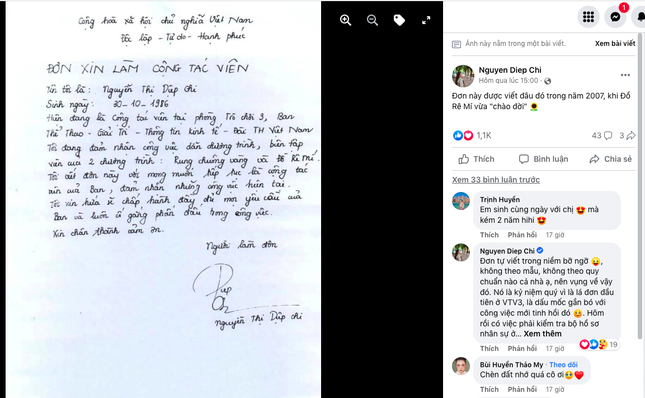 Cộng hoà xã hội chủ nghĩa Việt Nam
Độc lập - Tự do - Hạnh phúc
ĐƠN XIN LÀM CỘNG TÁC VIÊN
Tên tôi là: Nguyễn Thị Diệp Chi
Sinh ngày: 30-10-1986
Hiện đang là Cộng tác viên tại phòng Trò chơi 3, Ban
Thể Thao - Giải Trí - Thông tin kinh tế - Đài TH Việt Nam
Tôi đang đảm nhận công việc dẫn chương trình, biên tập
viên của 2 chương trình: Rung chuông vàng và Đồ Rê Mí.
Tôi viết đơn này với mong muốn, tiếp tục là cộng tác
viên của Ban, đảm nhận những công việc hiện tại.
Tôi xin hứa sẽ chấp hành đầy đủ mọi yêu cầu của
Ban và luôn cố gắng phấn đấu trong công việc.
Xin chân thành cảm ơn.
Người làm đơn
Nguyễn Thị Diệp Chi
1
Ảnh này nằm trong một bài viết. Xem bài viết
Nguyen Diep Chi
Hôm qua lúc 15:00
Đơn này được viết dâu đó trong năm 2007, khi Đồ
Rê Mí vừa "chào dời" 🌻
1,1K 43 3
Thích Bình luận Chia sẻ
Xem 33 bình luận trước
Trịnh Huyền
Em sinh cùng ngày với chị 😍 mà
kém 2 năm hihi 😍
Thích Phản hồi 17 giờ
Nguyen Diep Chi
Đơn tự viết trong niềm bỡ ngỡ 😛,
không theo mẫu, không theo quy
chuẩn nào cả nhà ạ, nên vụng về vậy
đó. Nó là kỷ niệm quý vì là lá đơn đầu
tiên ở VTV3, là dấu mốc gắn bó với
công việc mới tinh hồi đó 😊. Hôm
rồi có việc phải kiểm tra bộ hồ sơ
nhân sự ở... Xem thêm
19
Thích Phản hồi 17 giờ
Bùi Huyền Thảo My · Theo dõi
Chèn đất nhớ quá cô ơi🥹❤️
Thích Phản hồi 17 giờ